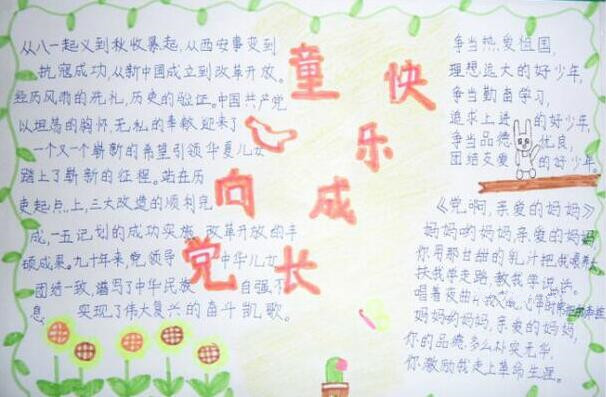 从八一起义到秋收暴起,从西安事变到
抗寇成功,从新中国成立到改革开放。
经历风雨的洗礼,历史的验证。中国共产党
以坦荡的胸怀,无私的奉献,迎来了
一个又一个崭新的希望引领华夏儿女
踏上了崭新的征程。站在历
史起点上,三大改造的顺利完
成,一五计划的成功实施,改革开放的丰
硕成果。九十年来,党领导中华儿女
团结一致,谱写了中华民族自强不
息,实现了伟大复兴的奋斗凯歌。
童心向党
快乐成长
争当热爱祖国,
理想远大的好少年,
争当勤奋学习,
追求上进的好少年,
争当品德优良,
团结友爱的好少年。
《党啊,亲爱的妈妈》
妈妈哟妈妈,亲爱的妈妈
你用那甘甜的乳汁把我喂养大
扶我学走路,教我学说话。
唱着夜曲
妈妈哟妈妈,亲爱的妈妈,
你的品德,多么朴实无华,
你激励我走上革命生涯。